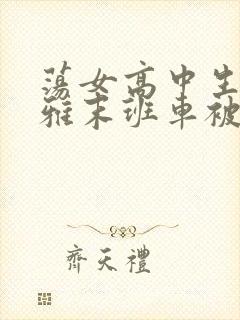 蕩女高中生
雅末班車被
齊天禮